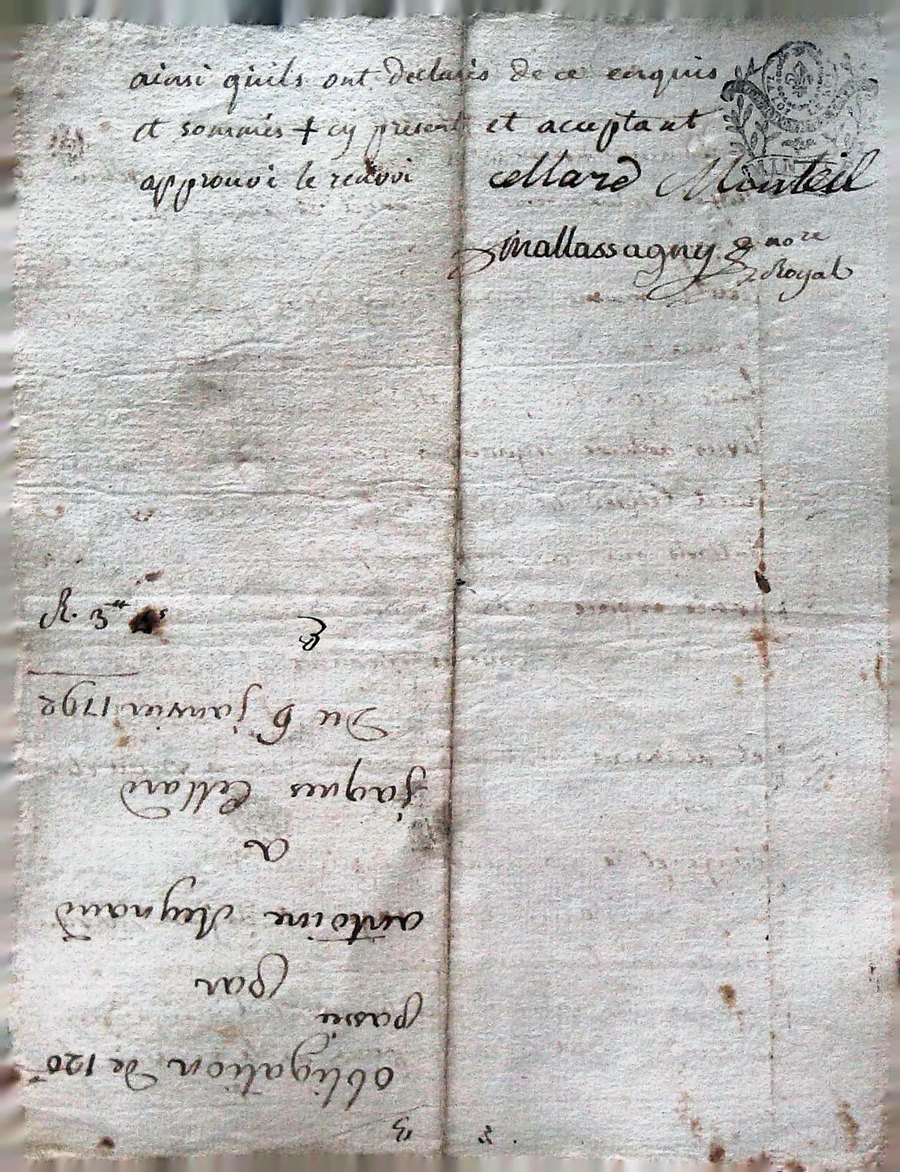 ainsi quils ont declarés de ce enquis
et sommés + cy present et acceptant
approuvé le renvoi cellard Monteil
Mallassagny nore
Royal
R. 3
obligation de 120
passé
par
antoine Reynaud
a
jaques Cellard
Du 6 janvier 1792